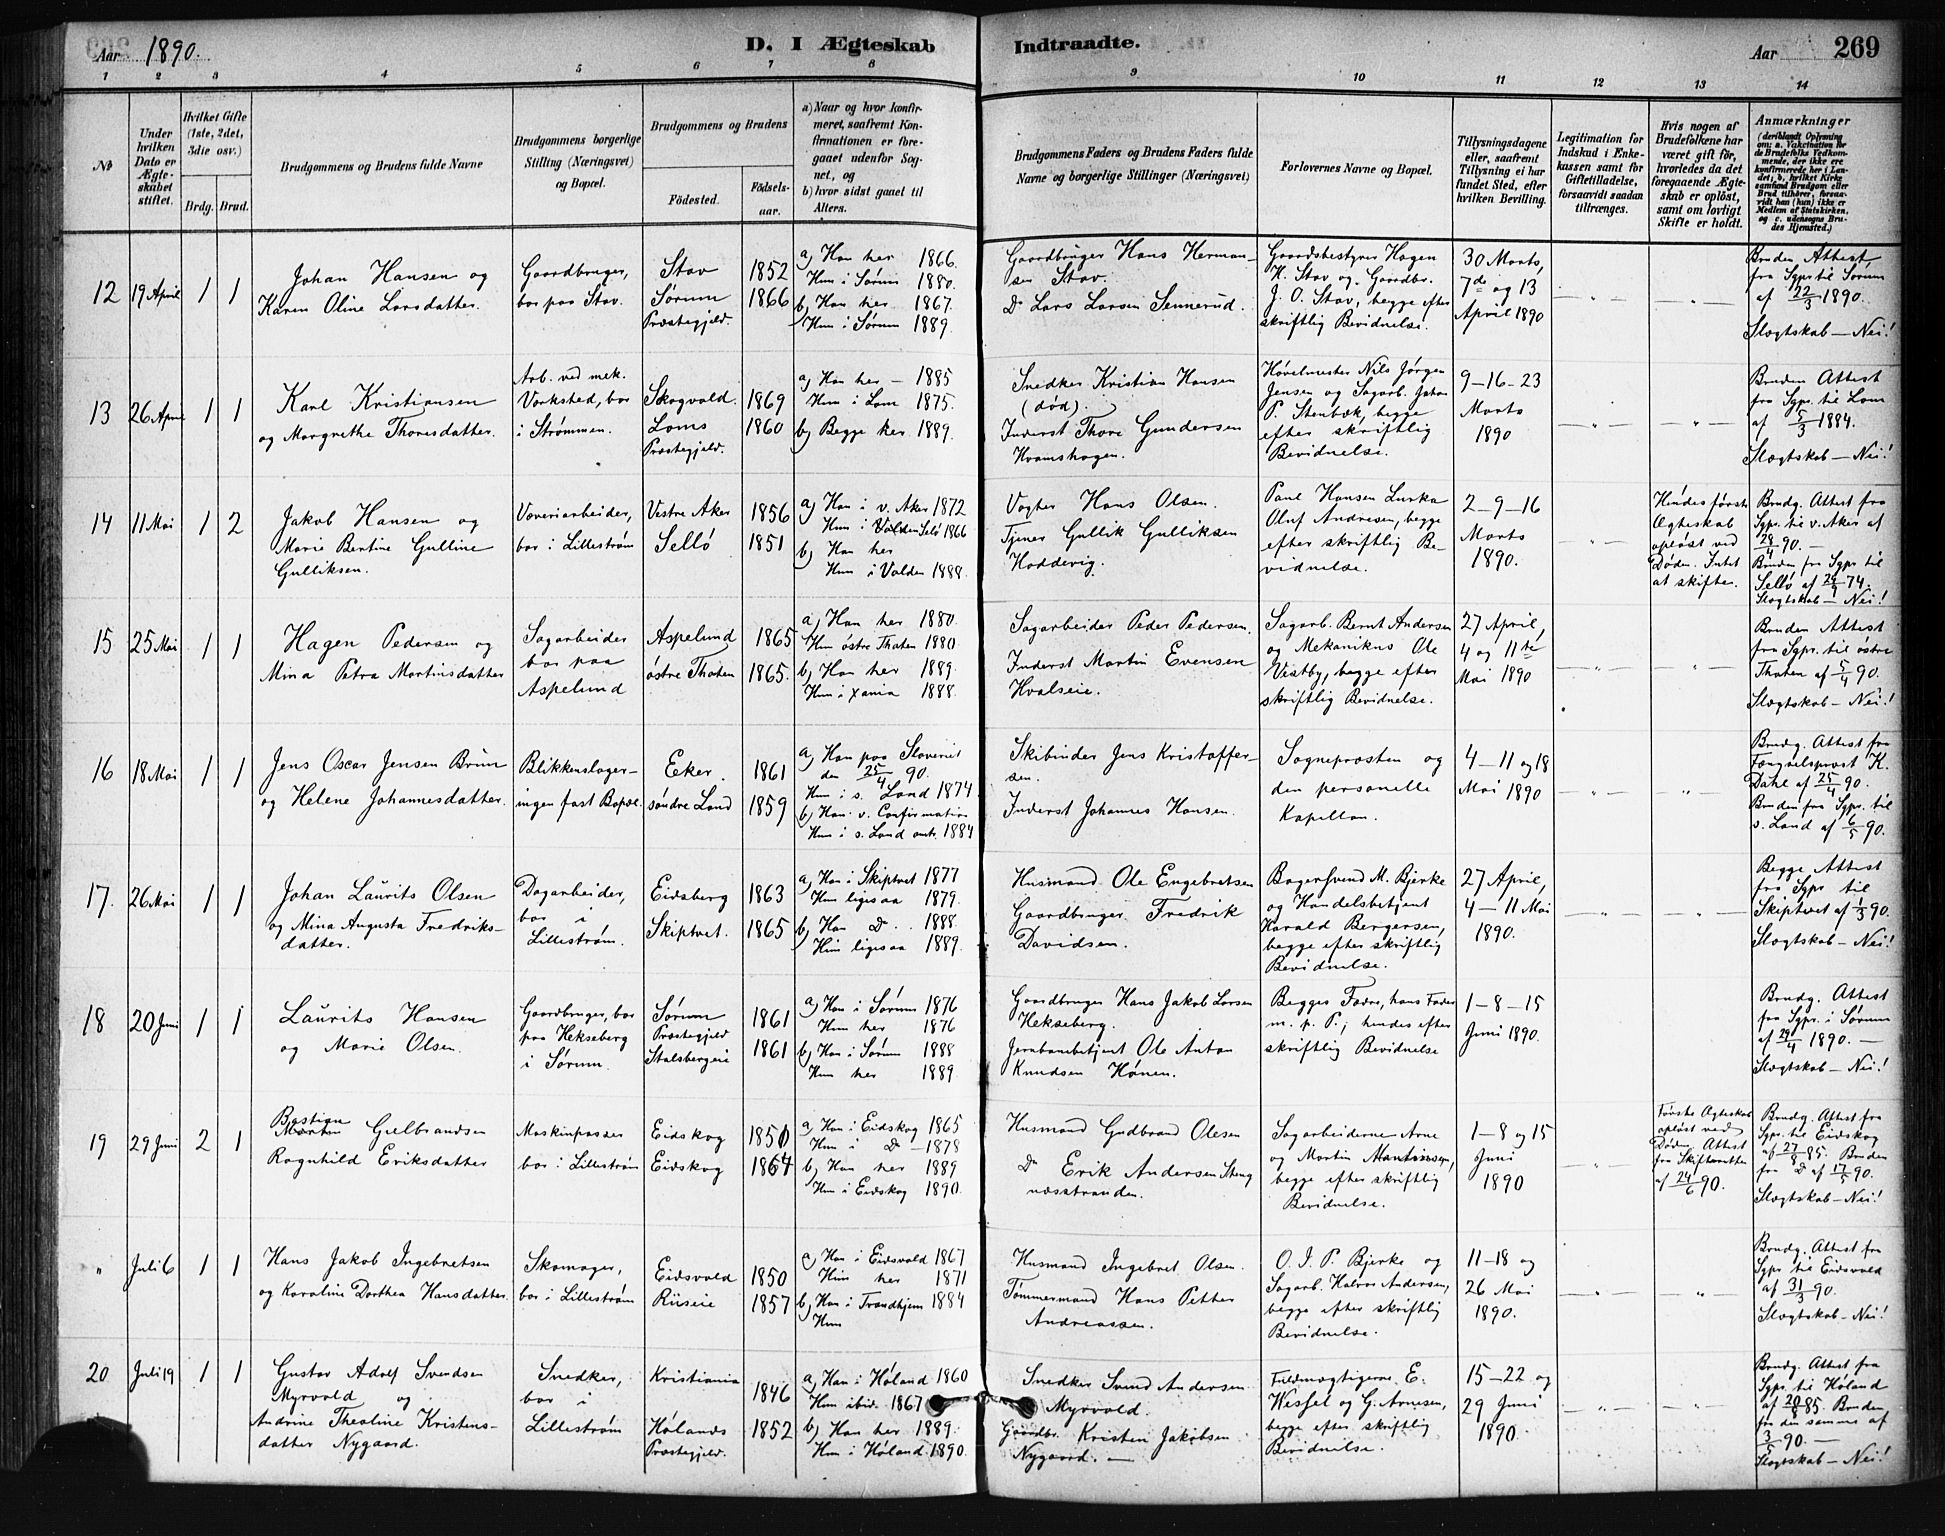 Aar 1890.
D. I Ægteskab
Indtraadte.
Aar
269
1 2 3 4 5 6 7 8 9 10 11 12 13 14
No
Under hvilken Dato er Ægteskabet stiftet.
Hvilket Gifte (1ste, 2det, 3die osv.)
Brdg. Brud.
Brudgommens og Brudens fulde Navne
Brudgommens borgerlige Stilling (Næringsvei) og Bopæl.
Brudgommens og Brudens
Fødested. Fødselsaar.
a) Naar og hvor konfirmeret, saafremt Konfirmationen er foregaaet udenfor Sognet, og
b) hvor sidst gaaet til Alters.
Brudgommens Faders og Brudens Faders fulde Navne og borgerlige Stillinger (Næringsvei)
Forlovernes Navne og Bopæl.
Tillysningsdagene eller, saafremt Tillysning ei har fundet Sted, efter hvilken Bevilling.
Legitimation for Indskud i Enkekassen samt for Giftetilladelse, forsaavidt saadan tiltrænges.
Hvis nogen af Brudefolkene har været gift før, hvorledes da det foregaaende Ægteskab er opløst, samt om lovligt Skifte er holdt.
Anmærkninger (deriblandt Oplysning om: a. Vakcination for de Brudefolks Vedkommende, der ikke ere konfirmerede her i Landet; b. hvilket Kirkesamfund Brudgom eller Brud tilhører, forsaavidt han (hun) ikke er Medlem af Statskirken, og c. udensogns Brudes Hjemsted.)
12 19 April 1 1
Johan Hansen og
Karen Oline Larsdatter.
Gaardbruger,
bor paa Stav.
Stav 1852
Sørum 1866
Præstegjeld.
a) Han her 1866.
Hun i Sørum 1880.
b) Han her 1867.
Hun i Sørum 1889.
Gaardbruger Hans Hermansen Stav.
Do Lars Larsen Sennerud.
Gaardsbestyrer Hagen
H. Stav og Gaardbr.
J. O. Stav, begge efter
skriftlig Bevidnelse.
30 Marts,
7de og 13
April 1890
Bruden Attest
fra Sgpr. til Sørum
af 22/3 1890.
Slægtskab – Nei!
13 26 April 1 1
Karl Kristiansen
og Margrethe Thoresdatter.
Arb. ved mek.
Værksted, bor
i Strømmen.
Skogvold. 1869
Loms 1860
Præstegjeld.
a) Han her – 1885
Hun i Lom 1875.
b) Begge her 1889.
Snedker Kristian Hansen
(død).
Inderst Thore Gundersen
Kvamshagen.
Høvelmester Nils Jørgen
Jensen og Sagarb. Johan
P. Stenbæk, begge
efter skriftlig
Bevidnelse.
9–16–23
Marts
1890
Bruden Attest
fra Sgpr. til Lom
af 5/3 1884.
Slægtskab – Nei!
14 11 Mai 1 2
Jakob Hansen og
Marie Bentine Gulline
Gulliksen.
Væveriarbeider,
bor i Lillestrøm
Vestre Aker 1856
Sellø 1851
a) Han i v. Aker 1872
Hun i Valden Selø 1866
b) Han her
Hun i Valden 1888.
Vogter Hans Olsen.
Tjener Gullik Gulliksen
Hoddevig.
Paul Hansen Lurka
Oluf Andresen, begge
efter skriftlig Bevidnelse.
2–9–16
Marts
1890.
Hendes første
Ægteskab
opløst ved
Døden. Intet
at skifte.
Brudg. Attest fra
Sgpr. til v. Aker af
28/4 90. –
Bruden fra Sgpr til
Sellø af 29/9 74.
Slægtskab – Nei!
15 25 Mai 1 1
Hagen Pedersen og
Mina Petra Martinsdatter
Sagarbeider
bor paa
Aspelund
Aspelund 1865
østre Thoten 1865.
a) Han her 1880.
Hun østre Thoten 1880
b) Han her 1889.
Hun i Xania 1888.
Sagarbeider Peder Pedersen.
Inderst Martin Evensen
Hvalseie.
Sagarb. Bernt Andersen
og Mekanikus Ole
Vestby, begge efter
skriftlig Bevidnelse.
27 April,
4 og 11te
Mai 1890
Bruden Attest
fra Sgpr. til østre
Thoten af 5/4 90.
Slægtskab – Nei!
16 18 Mai 1 1
Jens Oscar Jensen Brun
og Helene Johannesdatter.
Blikkenslager –
ingen fast Bopæl.
Eker. 1861
søndre Land 1859
a) Han paa Slaveriet
den 25/4 90.
Hun i s. Land 1874
b) Han v. Confirmation
Hun i s. Land 1884
Skibinder Jens Kristoffersen.
Inderst Johannes Hansen.
Sogneprosten og
den personelle
Kapellan.
4–11 og 18
Mai 1890
Brudg. Attest fra
Fængselsprest K.
Dahl af 25/4 90.
Bruden fra Sgpr. til
s. Land af 6/5 90.
17. 26 Mai 1 1
Johan Laurits Olsen
og Mina Augusta Fredriksdatter.
Dagarbeider,
bor i
Lillestrøm.
Eidsberg 1863
Skiptvet. 1865
a) Han i Skiptvet 1877
Hun ligesaa 1879.
b) Han Do 1888.
Hun ligesaa 1889.
Husmand Ole Engebretsen
Gaardbruger Fredrik
Davidsen.
Bagersvend M. Bjerke
og Handelsbetjent
Harald Bergersen,
begge efter skriftlig
Bevidnelse.
27 April,
4–11 Mai
1890.
Begge Attest
fra Sgpr til
Skiptvet af 1/3 90.
Slægtskab – Nei!
18 20 Juni 1 1
Laurits Hansen
og Marie Olsen.
Gaardbruger, bor
paa Hekseberg
i Sørum.
Sørum 1861
Præstegjeld
Stalsbergeie 1861
a) Han i Sørum 1876
Hun her 1876
b) Han i Sørum 1888
Hun her 1889.
Gaardbruger Hans Jakob Larsen
Hekseberg.
Jernbanebetjent Ole Anton
Knudsen Hønen.
Begges Fædre, hans Fader
m. p. P.; hendes efter
skriftlig Bevidnelse
1–8–15
Juni 1890.
Brudg. Attest
fra Sgpr. i Sørum
af 29/4 1890. –
Slægtskab – Nei!
19 29 Juni 2 1
Bastian Gulbrandsen
Ragnhild Eriksdatter
Maskinpasser
bor i Lillestrøm
Eidskog 1850
Eidskog 1864
a) Han i Eidskog 1865
Hun i Do – 1878
b) Han her 1889
Hun i Eidskog 1890.
Husmand Gudbrand Olesen
Do Erik Andersen Stengnæsstranden.
Sagarbeiderne Arne
og Martin Martinsen,
begge efter skriftlig
Bevidnelse.
1–8 og 15
Juni
1890
Første Ægteskab
opløst ved
Døden. Attest
fra Skifteretten
af 24/6 90.
Brudg. Attest fra
Sgpr. til Eidskog
af 27/8 85. Bruden
fra Do af 17/5 90.
Slægtskab – Nei!
" Juli 6 1 1
Hans Jakob Ingebretsen
og Karoline Dorthea Hansdatter.
Skomager,
bor i Lillestrøm
Eidsvold 1850
Riiseie 1857
a) Han i Eidsvold 1867
Hun her 1871
b) Han i Trondhjem 1884
Hun
Husmand Ingebret Olsen.
Tømmermand Hans Petter
Andreassen.
O. I. P. Bjerke og
Sagarb. Halvor Andersen,
begge efter skriftlig
Bevidnelse.
11–18 og
26 Mai
1890.
Brudg. Attest fra
Sgpr til Eidsvold
af 31/3 90.
Slægtskab – Nei!
20 Juli 19 1 1
Gustav Adolf Svendsen
Myrvold og
Andrine Theoline Kristensdatter Nygaard.
Snedker,
bor i
Lillestrøm
Kristiania 1846
Hølands 1852
Præstegjeld.
a) Han i Høland 1860
Hun ibid. 1867
b) Han her 1889.
Hun i Høland 1890.
Snedker Svend Andersen
Myrvold.
Gaardbr. Kristen Jakobsen
Nygaard. –
Fuldmægtigerne E.
Wessel og G. Arnesen,
begge efter skriftlig
Bevidnelse.
15–22 og
29 Juni
1890.
Brudg. Attest fra
Sgpr. til Høland
af 20/8 85. Bruden
fra den samme af
3/5 90. –
Slægtskab – Nei!